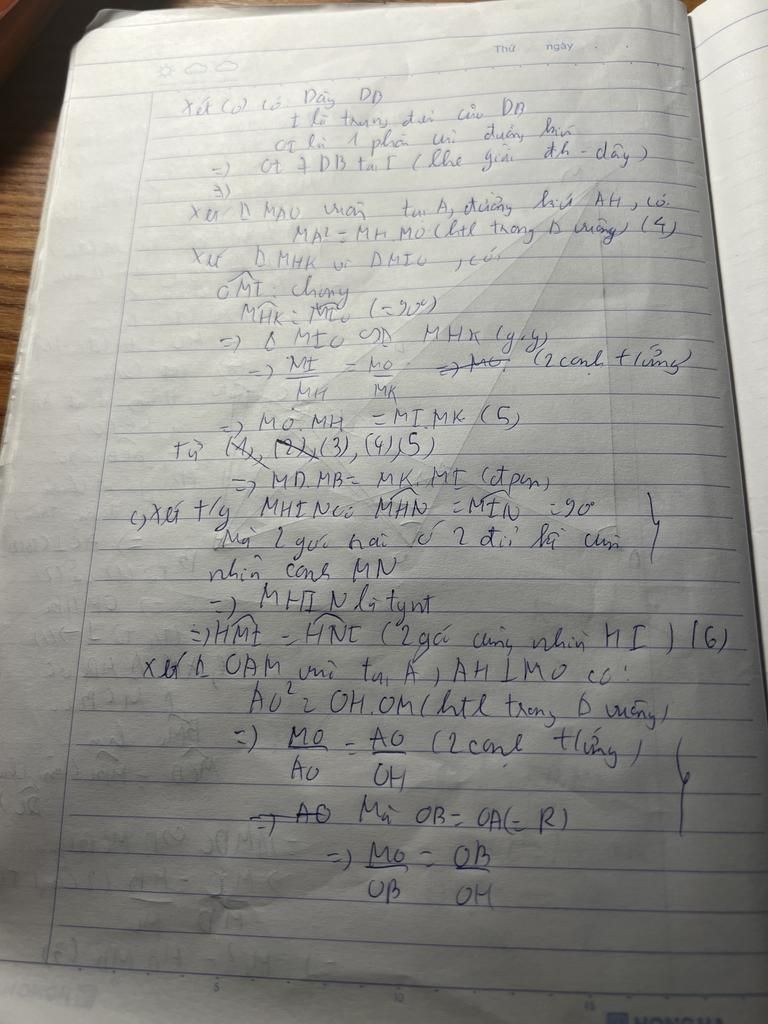 Thứ ngày
Xét (O) có Dây DB
I là trung điể của DB
OI là 1 phần vi đường kín
=> OI ⊥ DB tại I ( đk - dây)
=>)
Xét Δ MAO vuôn tại A, đường AH, có
MA² = MH.MO (htl trong Δ vuông) (4)
Xét Δ MHK và Δ MIO, có:
OMI: chung
MHK = MIO (= 90°)
=> Δ MIO ∽ Δ MHK (g.g)
=> MI/MH = MO/MK => MO. (2 cạnh t/ứng)
=> MO.MH = MI.MK (5)
Từ (1), (2), (3), (4), 5)
=> MD.MB = MK.MI (đpcm)
c) Xét t/g MHIN có MHN = MIN = 90°
Mà 2 góc 2 cùn
nhìn cạnh MN
=> MHIN là tgnt
=> HMI = HNI (2 góc cùng nhìn HI) (6)
Xét Δ OAM tại A, AH ⊥ MO có:
AO² = OH.OM (htl trong Δ vuông)
=> MO/AO = AO/OH (2 cạnh t/ứng)
=> AO Mà OB = OA (= R)
=> MO/OB = OB/OH
5 10 15
HONG HA